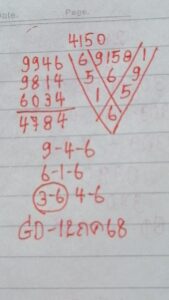 Date. Page.
4150
9946 6 9158 1
9814 5 6 9
6034 1 5
4784 6
9-4-6
6-1-6
3-6 4-6
GD-12ถค68